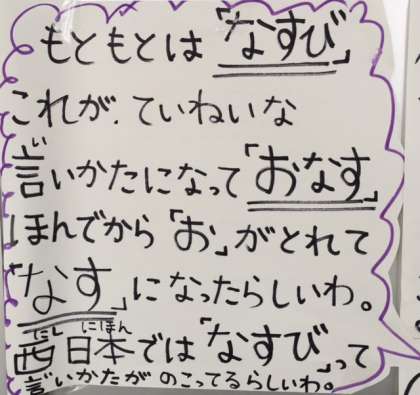 もともとは「なすび」
これが、ていねいな
言いかたになって「おなす」
ほんでから「お」がとれて
「なす」になったらしいわ。
西日本では「なすび」って
言いかたがのこってるらしいわ。